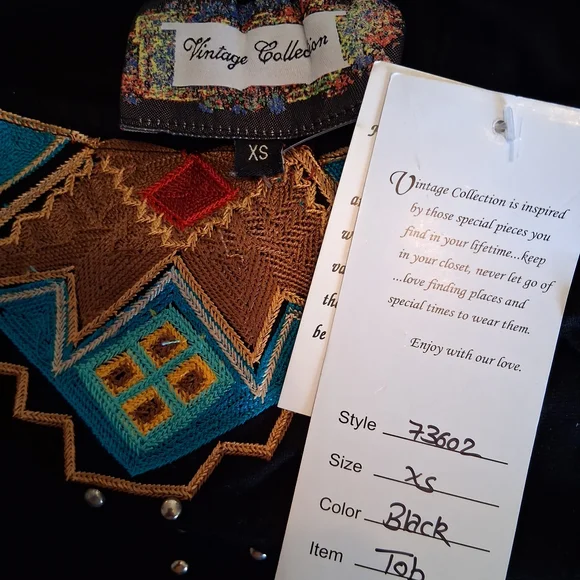 Vintage Collection
XS
Vintage Collection is inspired
by those special pieces you
find in your lifetime...keep
in your closet, never let go of
...love finding places and
special times to wear them.
Enjoy with our love.
Style 73602
Size XS
Color Black
Item Top
be